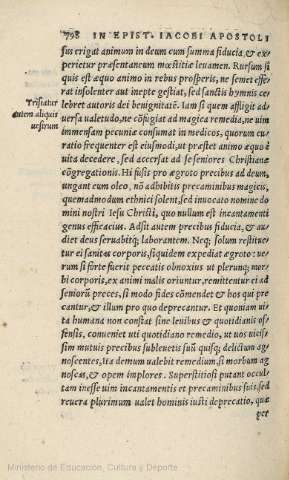 798 IN EPIST. IACOBI APOSTOLI
sus erigat animum in deum cum summa fiducia, & ex-
perietur præsentaneum mœstitiæ leuamen. Rursum si
quis est æquo animo in rebus prosperis, ne semet effe-
rat insolenter aut inepte gestiat, sed sanctis hymnis ce-
Tristatur
autem aliquis
uestrum
lebret autoris dei benignitatē. Iam si quem affligit ad-
uersa ualetudo, ne cōfugiat ad magica remedia, ne uim
immensam pecuniæ consumat in medicos, quorum cu-
ratio frequenter est eiusmodi, ut præstet animo æquo è
uita decedere, sed accersat ad se seniores Christianæ
cōgregationis. Hi fusis pro ægroto precibus ad deum,
ungant eum oleo, nō adhibitis precaminibus magicis,
quemadmodum ethnici solent, sed inuocato nomine do
mini nostri Iesu Christi, quo nullum est incantamenti
genus efficacius. Adsit autem precibus fiducia, & au-
diet deus seruabitq; laborantem. Neq; solum restitue-
tur ei sanitas corporis, siquidem expediat ægroto: ue-
rum si forte fuerit peccatis obnoxius ut plerunq; mor-
bi corporis, ex animi malis oriuntur, remittentur ei ad
seniorū preces, si modo fides cōmendet & hos qui pre
cantur, & illum pro quo deprecantur. Et quoniam ui-
ta humana non constat sine leuibus & quotidianis of-
fensis, conueniet uti quotidiano remedio, ut uos uicis-
sim mutuis precibus subleuetis suū quisq; delictum ag-
noscentes, Ita demum ualebit remedium, si morbum ag
noscas, & opem implores. Superstitiosi putant occul-
tam inesse uim incantamentis et precaminibus suis, sed
reuera plurimum ualet hominis iusti deprecatio, quæ
pet
Ministerio de Educación, Cultura y Deporte